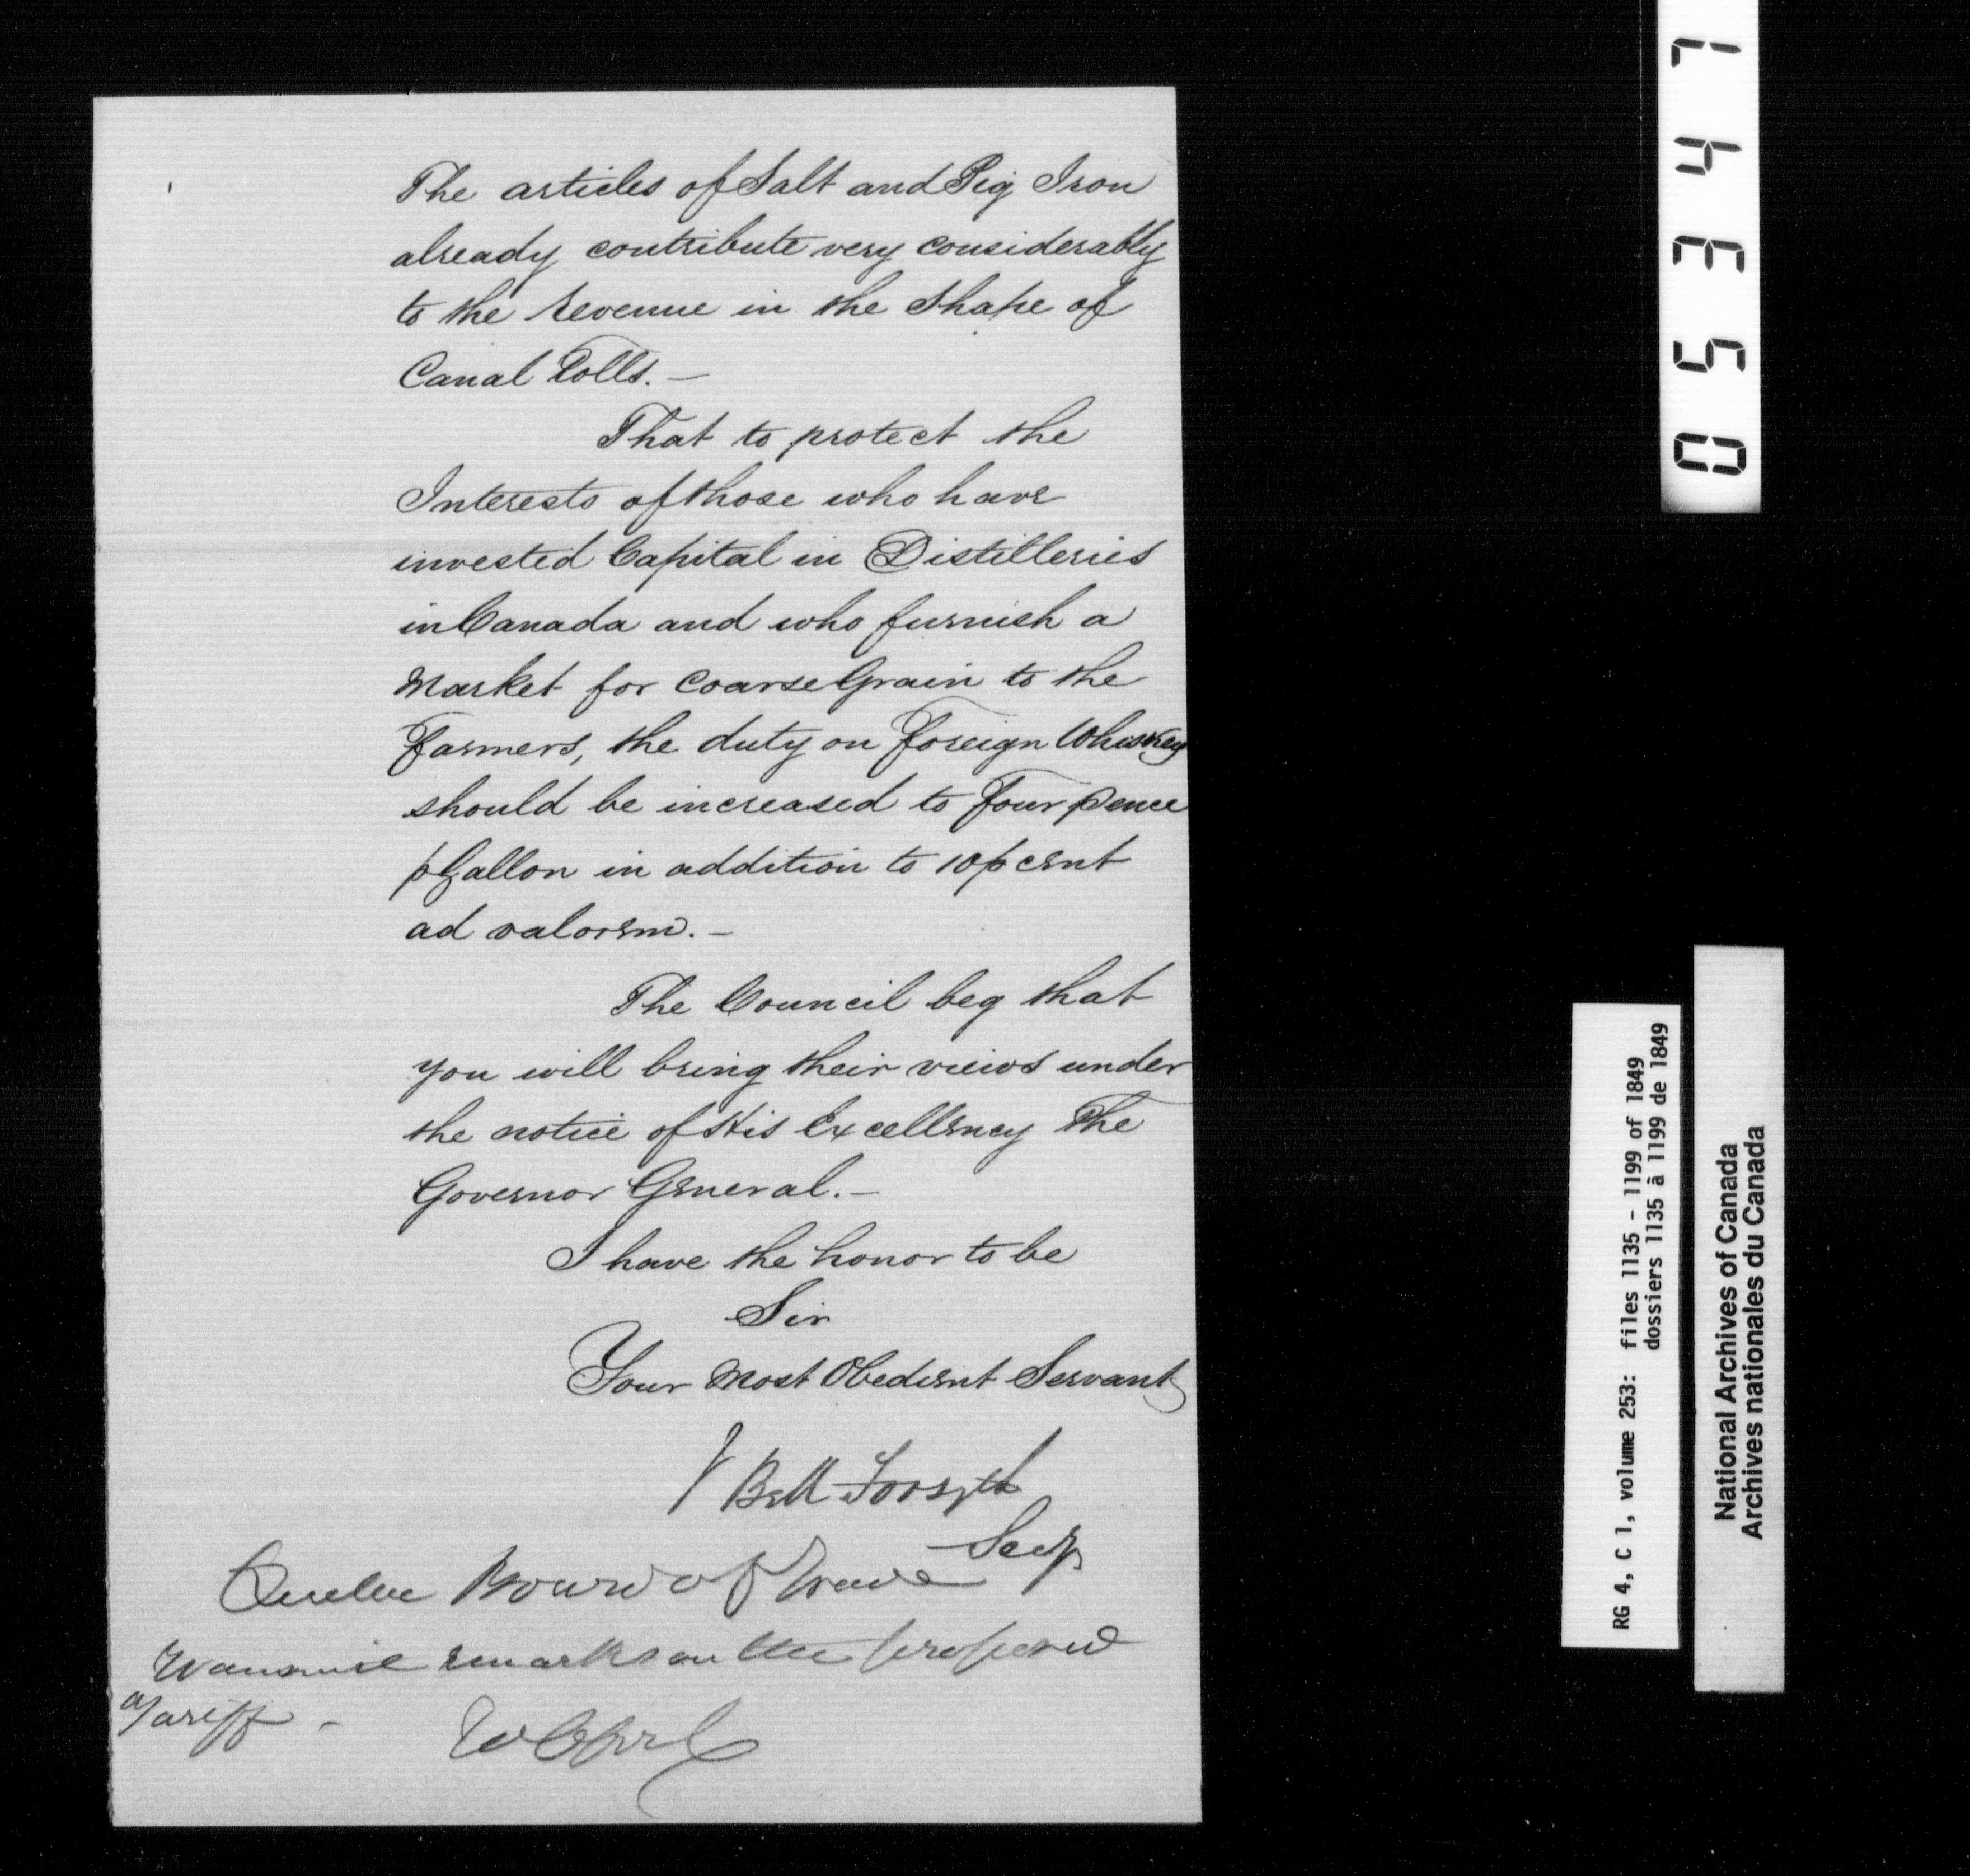 The articles of Salt and Pig Iron
already contribute very considerably
to the revenue in the shape of
Canal Tolls. —
That to protect the
Interests of those who have
invested Capital in Distilleries
in Canada and who furnish a
Market for coarse Grain to the
Farmers, the duty on Foreign Whiskey
should be increased to Four pence
p Gallon in addition to 10 p cent
ad valorem. —
The Council beg that
you will bring their views under
the notice of His Excellency The
Governor General. —
I have the honor to be
Sir
Your Most Obedient Servant
J Bell Forsyth
Secy
Quebec Board of Trade
Transmit remarks on the proposed
Tariff —
05347
RG 4, C 1, volume 253: files 1135 - 1199 of 1849
dossiers 1135 à 1199 de 1849
National Archives of Canada
Archives nationales du Canada